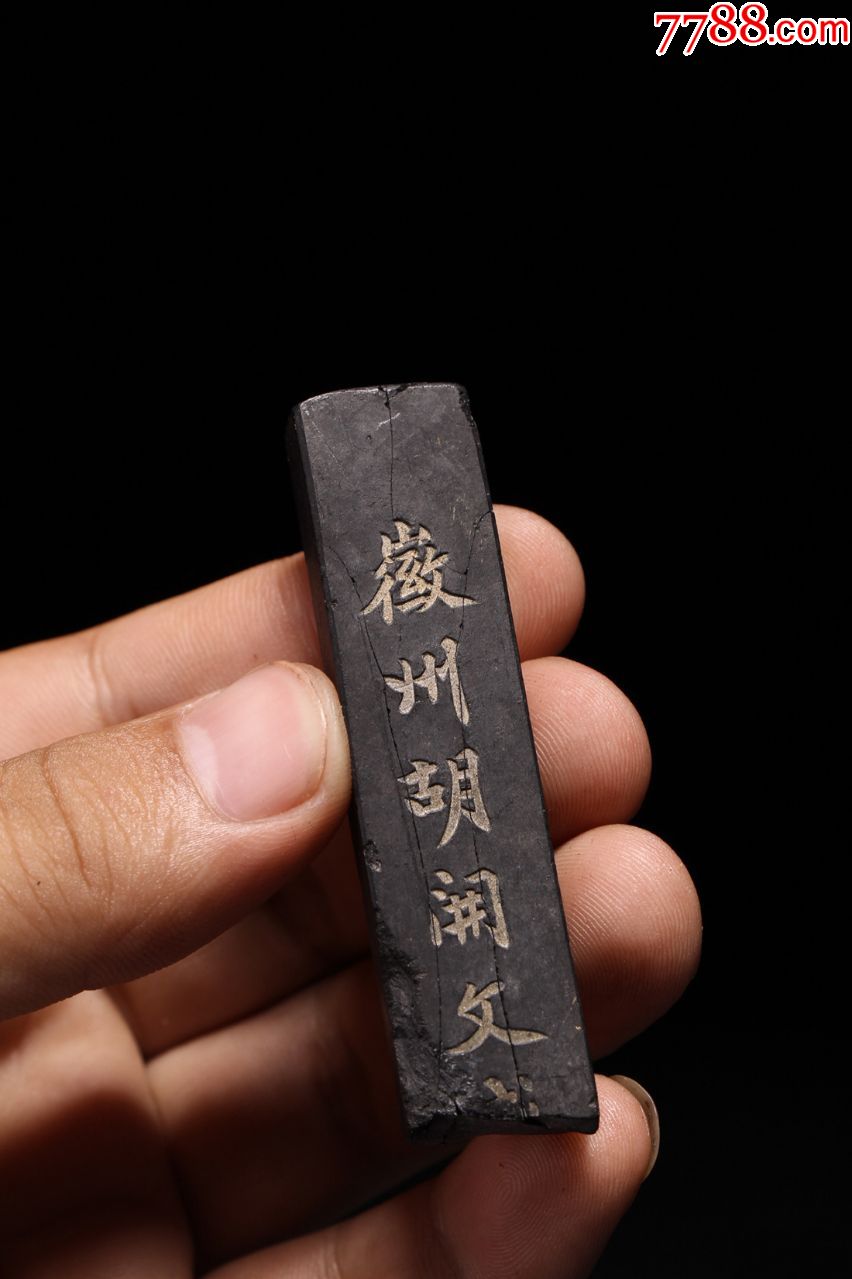 7788.com
徽州胡開文